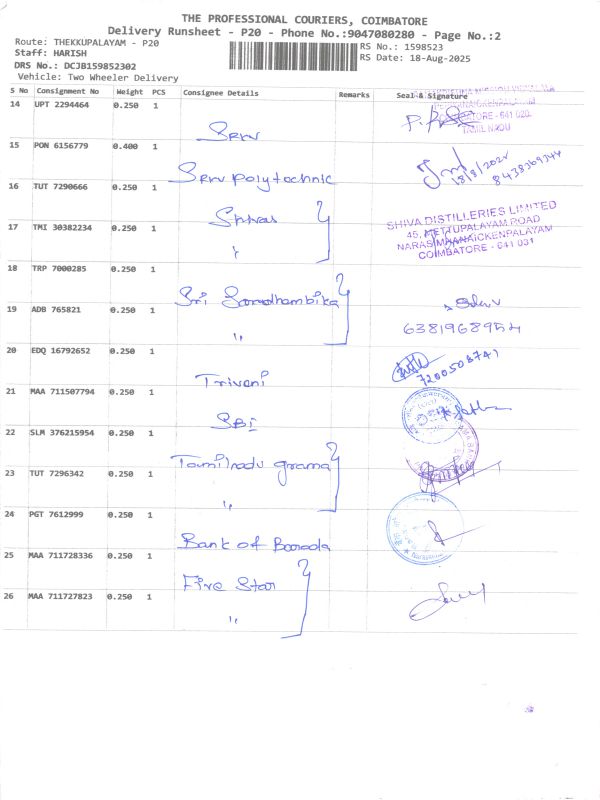 THE PROFESSIONAL COURIERS, COIMBATORE
Delivery Runsheet - P20 - Phone No.:9047080280 - Page No.:2
Route: THEKKUPALAYAM - P20
Staff: HARISH
DRS No.: DCJB159852302
Vehicle: Two Wheeler Delivery
RS No.: 1598523
RS Date: 18-Aug-2025
S No Consignment No Weight PCS Consignee Details Remarks Seal & Signature
14 UPT 2294464 0.250 1 Srrv
COIMBATORE - 641 020.
TAMIL NADU
15 PON 6156779 0.400 1 Srrv polytechnic
18/8/2025
8438369344
16 TUT 7290666 0.250 1 Shivas
SHIVA DISTILLERIES LIMITED
45, METTUPALAYAM ROAD
NARASIMHANAICKENPALAYAM
COIMBATORE - 641 031
17 TMI 30382234 0.250 1 "
18 TRP 7000285 0.250 1 Sri Sowdhambika
19 ADB 765821 0.250 1 "
6381968954
20 EDQ 16792652 0.250 1 Triveni
7200508741
21 MAA 711507794 0.250 1 SBI
22 SLM 376215954 0.250 1 Tamilnadu grama
23 TUT 7296342 0.250 1 "
24 PGT 7612999 0.250 1 Bank of Barooda
25 MAA 711728336 0.250 1 Five Star
26 MAA 711727823 0.250 1 "